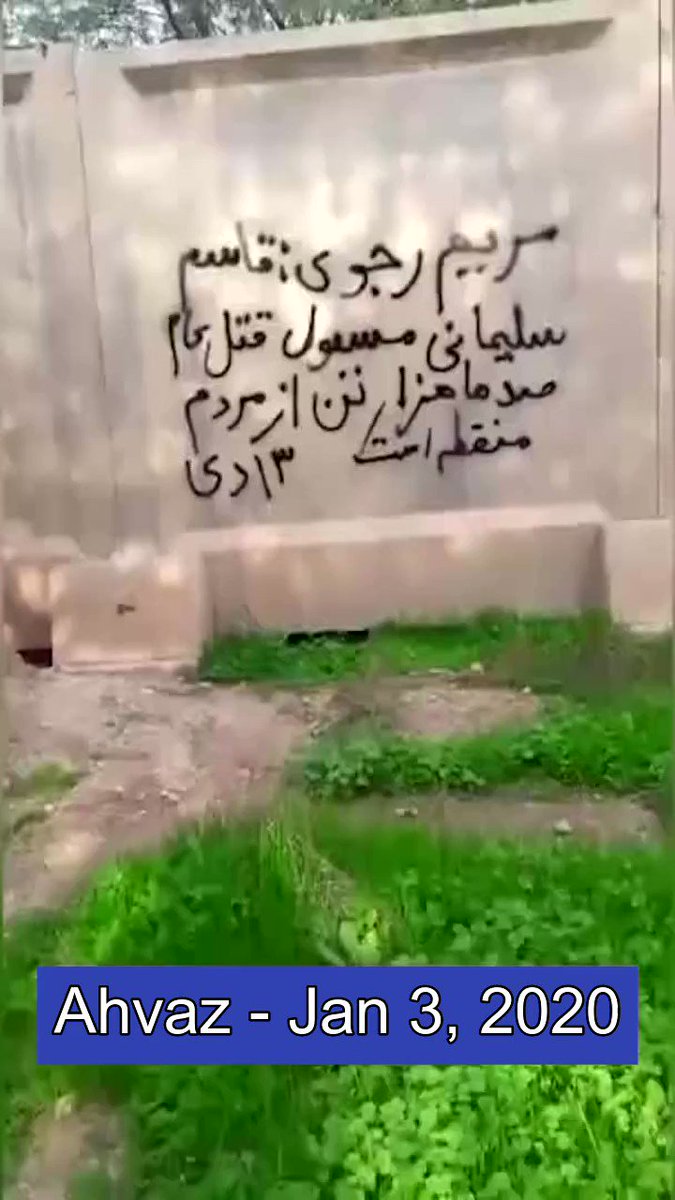 مریم رجوی: قاسم
سلیمانی مسول قتل عام
صدها هزار تن از مردم
منطقه است ۱۳ دی
Ahvaz - Jan 3, 2020